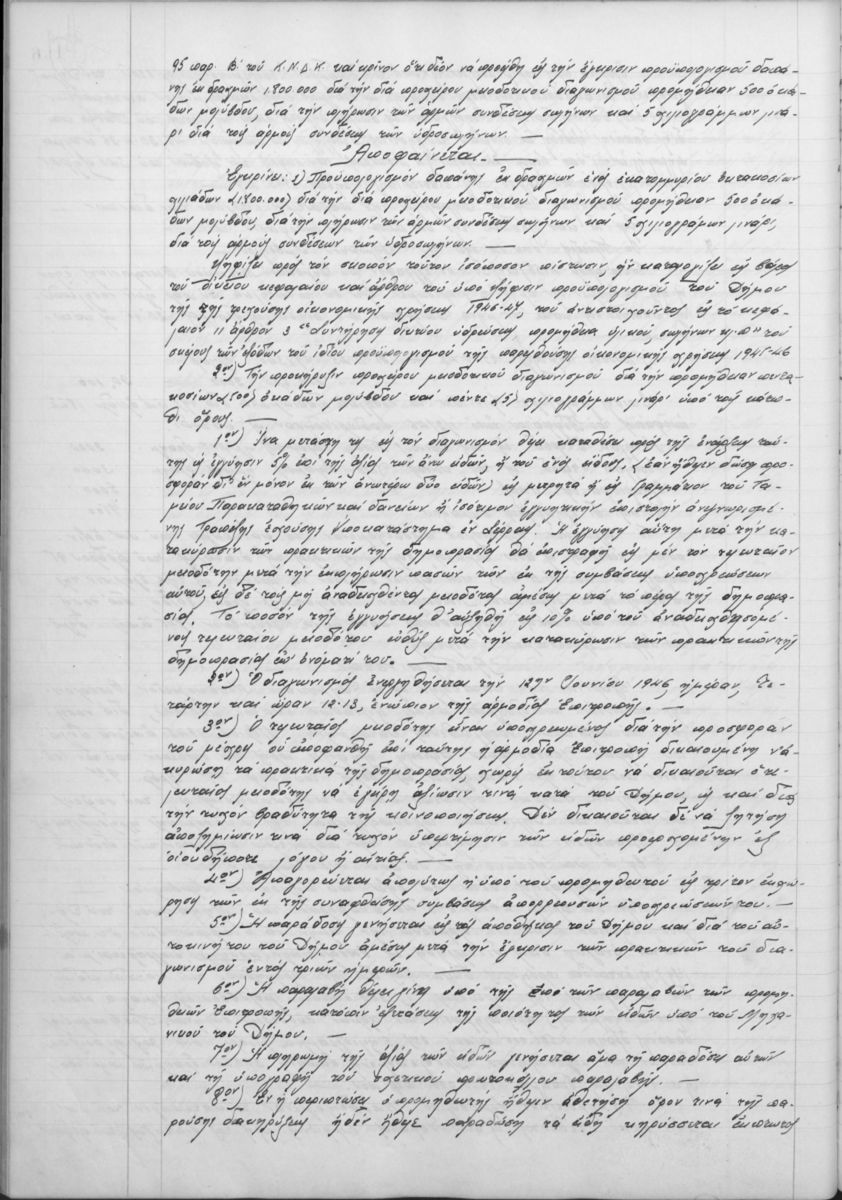 95 παρ. Β' τοῦ Κ.Ν.Δ.Κ. καὶ κρίνον ὅτι δέον νὰ προέλθῃ εἰς τὴν ἔγκρισιν προϋπολογισμοῦ δαπά-
νης ἐκ δραχμῶν 1.800.000 διὰ τὴν διὰ προχείρου μειοδοτικοῦ διαγωνισμοῦ προμήθειαν 500 ὀκά-
δων μολύβδου, διὰ τὴν πλήρωσιν τῶν ἁρμῶν συνδέσεως σωλήνων καὶ 5 χιλιογράμμων λινά-
ρι διὰ τοὺς ἁρμοὺς συνδέσεως τῶν ὑδροσωλήνων. —
Ἀποφαίνεται. —
Ἐγκρίνει: 1) Προϋπολογισμὸν δαπάνης ἐκ δραχμῶν ἑνὸς ἑκατομμυρίου ὀκτακοσίων
χιλιάδων (1.800.000) διὰ τὴν διὰ προχείρου μειοδοτικοῦ διαγωνισμοῦ προμήθειαν 500 ὀκά-
δων μολύβδου, διὰ τὴν πλήρωσιν τῶν ἁρμῶν συνδέσεως σωλήνων καὶ 5 χιλιογράμων λινάρι,
διὰ τοὺς ἁρμοὺς συνδέσεων τῶν ὑδροσωλήνων. —
Ψηφίζει πρὸς τὸν σκοπὸν τοῦτον ἰσόποσον πίστωσιν, ἣν καταλογίζει εἰς βάρος
τοῦ οἰκείου κεφαλαίου καὶ ἄρθρου τοῦ ὑπὸ ψήφισιν προϋπολογισμοῦ τοῦ Δήμου
τῆς τρεχούσης οἰκονομικῆς χρήσεως 1946-47, τοῦ ἀντιστοιχοῦντος εἰς τὸ κεφά-
λαιον 11 ἄρθρον 3 "Συντήρησις δικτύου ὑδρεύσεως προμήθεια ὑλικοῦ, σωλήνων κ.π." τοῦ
σκέλους τῶν ἐξόδων τοῦ ἰδίου προϋπολογισμοῦ τῆς παρελθούσης οἰκονομικῆς χρήσεως 1945-46
2ον) Τὴν προκήρυξιν προχείρου μειοδοτικοῦ διαγωνισμοῦ διὰ τὴν προμήθειαν πεντα-
κοσίων (500) ὀκάδων μολύβδου καὶ πέντε (5) χιλιογράμμων λινάρι ὑπὸ τοὺς κάτω-
θι ὅρους. —
1ον) Ἵνα μετάσχῃ τις εἰς τὸν διαγωνισμὸν θέλει καταθέσει πρὸ τῆς ἐνάρξεως ταύ-
της εἰς ἐγγύησιν 5% ἐπὶ τῆς ἀξίας τῶν ἄνω εἰδῶν, ἢ τοῦ ἑνὸς εἴδους, (ἐὰν ἤθελεν δώσῃ προσ-
φορὰν δι' ἓν μόνον ἐκ τῶν ἀνωτέρω δύο εἰδῶν) εἰς μετρητὰ ἢ εἰς Γραμμάτιον τοῦ Τα-
μείου Παρακαταθηκῶν καὶ δανείων ἢ ἰσότιμον ἐγγυητικὴν ἐπιστολὴν ἀνεγνωρισμέ-
νης Τραπέζης ἐχούσης Ὑποκατάστημα ἐν Σέρραις. Ἡ ἐγγύησις αὕτη μετὰ τὴν κα-
τακύρωσιν τῶν πρακτικῶν τῆς δημοπρασίας θὰ ἐπιστραφῇ εἰς μὲν τὸν τελευταῖον
μειοδότην μετὰ τὴν ἐκπλήρωσιν πασῶν τῶν ἐκ τῆς συμβάσεως ὑποχρεώσεων
αὐτοῦ, εἰς δὲ τοὺς μὴ ἀναδειχθέντας μειοδότας ἀμέσως μετὰ τὸ πέρας τῆς δημοπρα-
σίας. Τὸ ποσὸν τῆς ἐγγυήσεως θ' αὐξηθῇ εἰς 10% ὑπὸ τοῦ ἀναδειχθησομέ-
νου τελευταίου μειοδότου εὐθὺς μετὰ τὴν κατακύρωσιν τῶν πρακτικῶν τῆς
δημοπρασίας ἐπ' ὀνόματί του. —
2ον) Ὁ διαγωνισμὸς ἐνεργηθήσεται τὴν 12ην Ἰουνίου 1946, ἡμέραν, Τε-
τάρτην καὶ ὥραν 12-13, ἐνώπιον τῆς ἁρμοδίας Ἐπιτροπῆς. —
3ον) Ὁ τελευταῖος μειοδότης εἶναι ὑποχρεωμένος διὰ τὴν προσφοράν
του μέχρις οὗ ἀποφανθῇ ἐπὶ ταύτης ἡ ἁρμοδία Ἐπιτροπὴ δικαιουμένη νὰ
κυρώσῃ τὰ πρακτικὰ τῆς δημοπρασίας, χωρὶς ἐκ τούτου νὰ δικαιοῦται ὁ τε-
λευταῖος μειοδότης νὰ ἐγείρῃ ἀξίωσιν τινὰ κατὰ τοῦ Δήμου, ὡς καὶ διὰ
τὴν τυχὸν βραδύτητα τῆς κοινοποιήσεως. Δὲν δικαιοῦται δὲ νὰ ζητήσῃ
ἀποζημίωσιν τινὰ διὰ τυχὸν ὑπερτίμησιν τῶν εἰδῶν προερχομένην ἐξ
οἱουδήποτε λόγου ἢ αἰτίας. —
4ον) Ἀπαγορεύεται ἀπολύτως ἡ ὑπὸ τοῦ προμηθευτοῦ εἰς τρίτον ἐκχώ-
ρησις τῶν ἐκ τῆς συναφθείσης συμβάσεως ἀπορρεουσῶν ὑποχρεώσεών του. —
5ον) Ἡ παράδοσις γενήσεται εἰς τὰς ἀποθήκας τοῦ Δήμου καὶ διὰ τοῦ αὐ-
τοκινήτου τοῦ Δήμου ἀμέσως μετὰ τὴν ἔγκρισιν τῶν πρακτικῶν τοῦ δια-
γωνισμοῦ ἐντὸς τριῶν ἡμερῶν. —
6ον) Ἡ παραλαβὴ θέλει γίνει ὑπὸ τῆς ἐπὶ τῶν παραλαβῶν τῶν προμη-
θειῶν Ἐπιτροπῆς, κατόπιν ἐξετάσεως τῆς ποιότητος τῶν εἰδῶν ὑπὸ τοῦ Μηχα-
νικοῦ τοῦ Δήμου. —
7ον) Ἡ πληρωμὴ τῆς ἀξίας τῶν εἰδῶν γενήσεται ἅμα τῇ παραδόσει αὐτῶν
καὶ τῇ ὑπογραφῇ τοῦ σχετικοῦ πρωτοκόλλου παραλαβῆς. —
8ον) Ἐν ᾗ περιπτώσει ὁ προμηθευτὴς ἤθελεν ἀθετήσῃ ὅρον τινὰ τῆς πα-
ρούσης διακηρύξεως ἢ δὲν ἤθελε παραδώσῃ τὰ εἴδη κηρύσσεται ἔκπτωτος